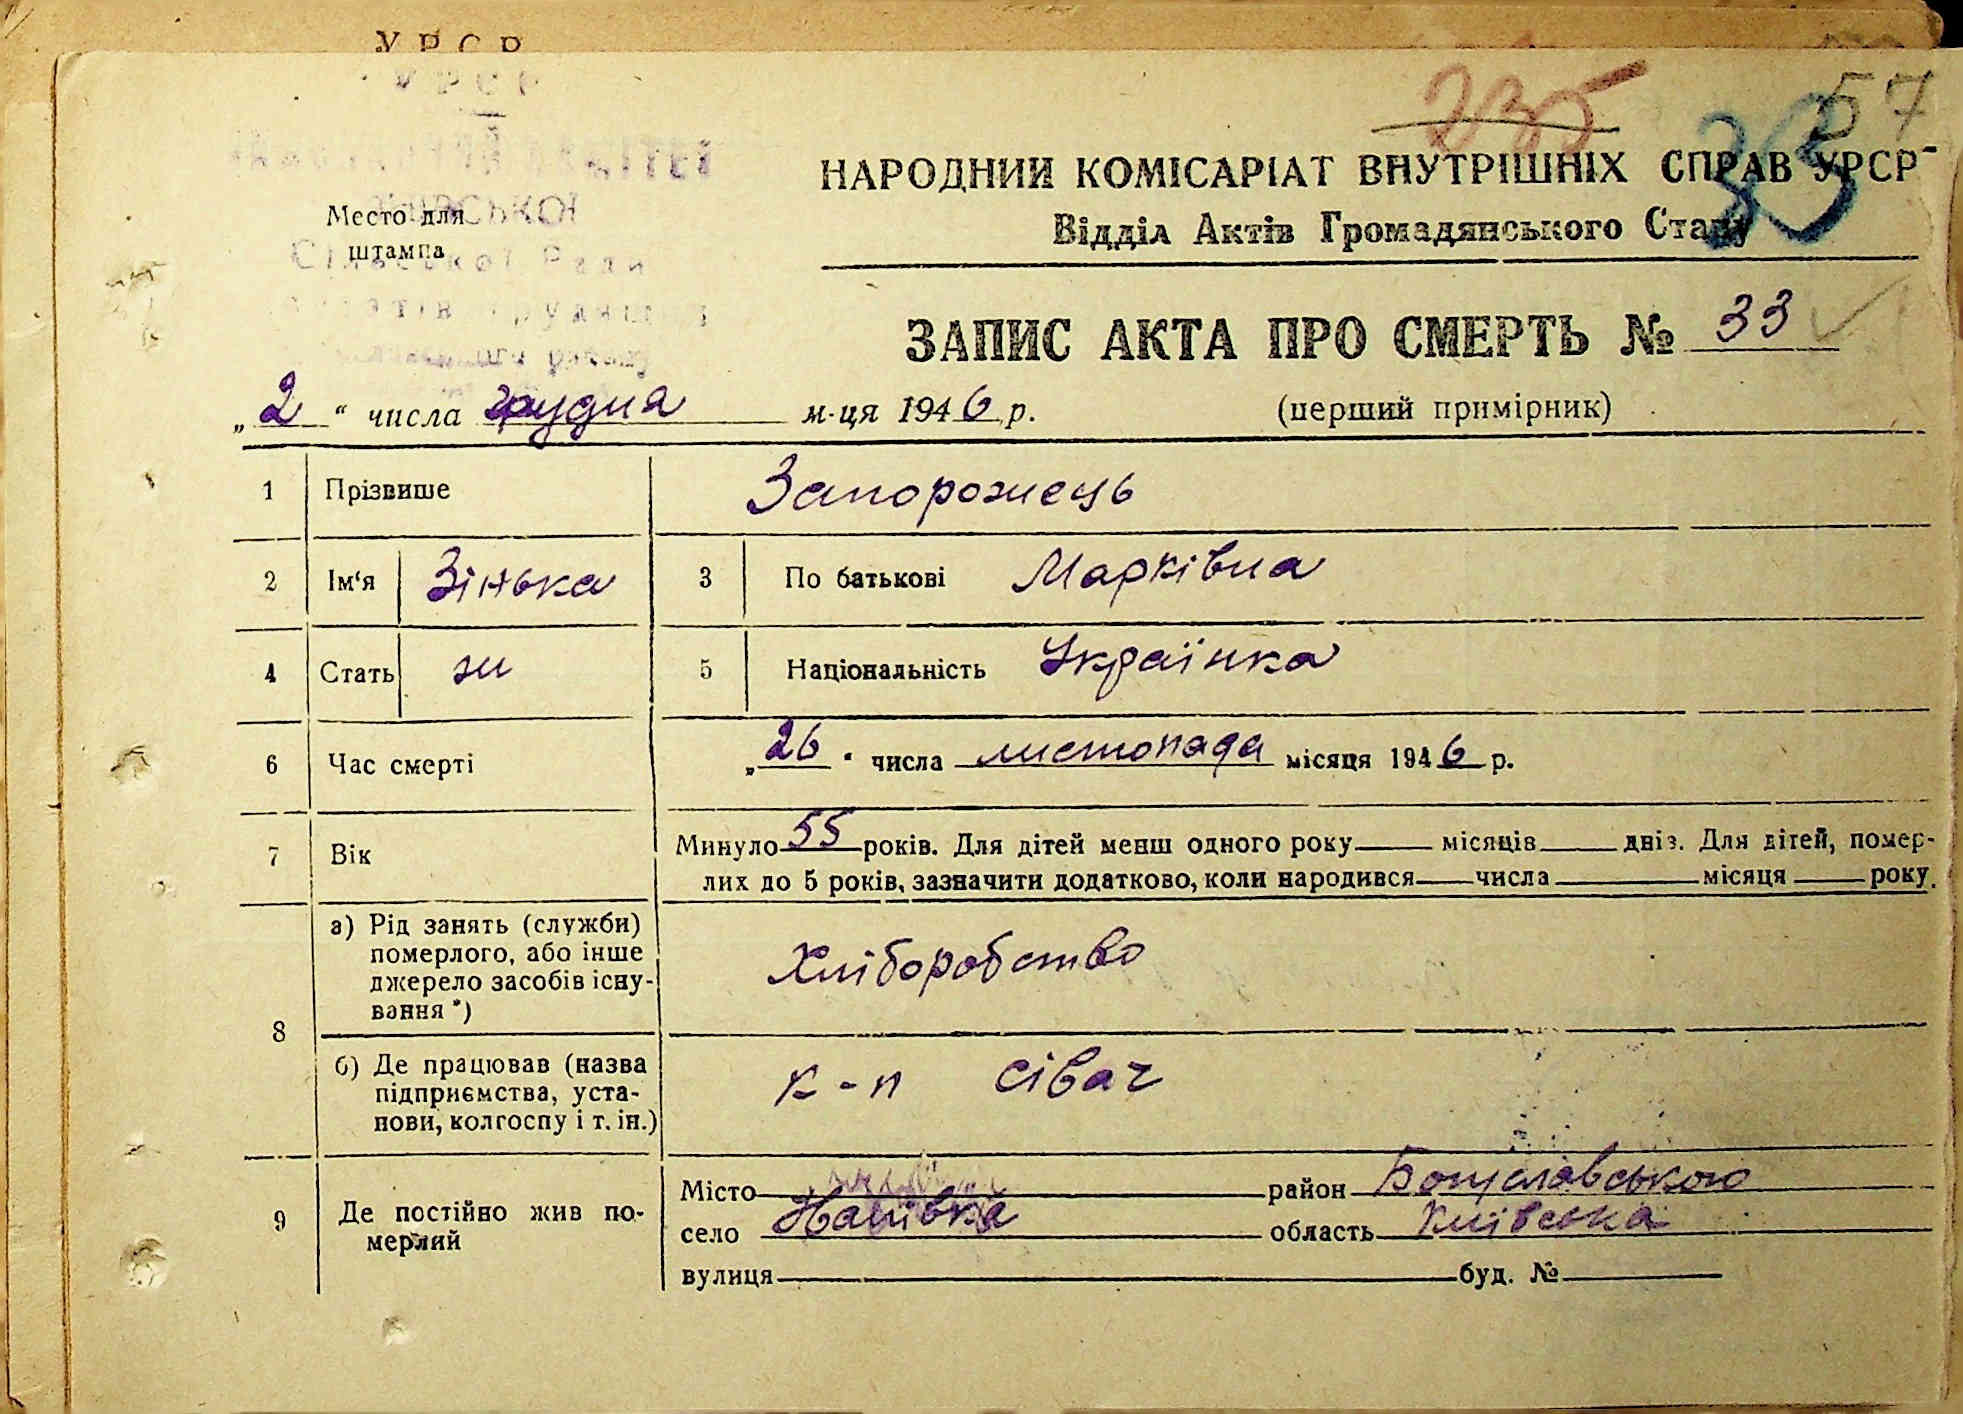 УРСР
УРСР
235
57
33
НАРОДНИЙ КОМІСАРІАТ ВНУТРІШНІХ СПРАВ УРСР
Відділ Актів Громадянського Стану
Место для
штампа
Сільської Ради
ЗАПИС АКТА ПРО СМЕРТЬ № 33
„2“ числа грудня м-ця 1946 р. (перший примірник)
1 Прізвище Запорожець
2 Ім‘я Зінька 3 По батькові Марківна
4 Стать ж 5 Національність Українка
6 Час смерті „26“ числа листопада місяця 1946 р.
7 Вік Минуло 55 років. Для дітей менш одного року місяців днів. Для дітей, помер-
лих до 5 років, зазначити додатково, коли народився числа місяця року.
8 а) Рід занять (служби)
померлого, або інше
джерело засобів існу-
вання *)
Хліборобство
б) Де працював (назва
підприємства, уста-
нови, колгоспу і т. ін.)
к-п сівач
9 Де постійно жив по-
мерлий
Місто район Богуславського
село область Київська
вулиця буд. №